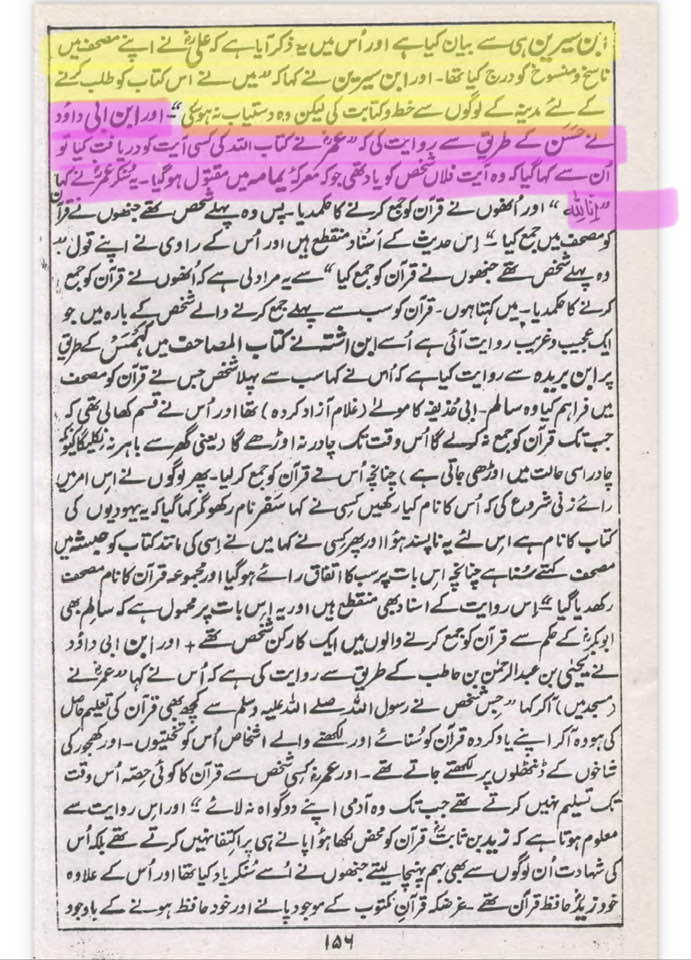 ابن سیرین ہی سے بیان کیا ہے اور اُس میں یہ ذکر آیا ہے کہ علیؓ نے اپنے مصحف میں
ناسخ و منسوخ کو درج کیا تھا۔ اور ابن سیرین نے کہا کہ "میں نے اس کتاب کو طلب کرنے
کے لئے مدینہ کے لوگوں سے خط و کتابت کی لیکن وہ دستیاب نہ ہو سکی" اور ابن ابی داؤد
نے حسن کے طریق سے روایت کی کہ "عمرؓ نے کتاب اللہ کی کسی آیت کو دریافت کیا تو
اُن سے کہا گیا کہ وہ آیت فلاں شخص کو یاد تھی جو کہ معرکۂ یمامہ میں مقتول ہوگیا۔ یہ سُنکر عمرؓ نے کہا
"اِنَّا لِلّٰہِ" اور اُنھوں نے قرآن کو جمع کرنے کا حکم دیا۔ پس وہ پہلے شخص تھے جنھوں نے قرآن
کو مصحف میں جمع کیا" اِس حدیث کے اَسناد منقطع ہیں اور اُس کے راوی نے اپنے قول "
وہ پہلے شخص تھے جنھوں نے قرآن کو جمع کیا" سے یہ مراد لی ہے کہ اُنھوں نے قرآن کو جمع
کرنے کا حکم دیا۔ میں کہتا ہوں۔ قرآن کو سب سے پہلے جمع کرنے والے شخص کے بارہ میں جو
ایک عجیب و غریب روایت آئی ہے اُسے ابن اشتہ نے کتاب المصاحف میں کہمس کے طریق
پر ابن بریدہ سے روایت کیا ہے کہ اُس نے کہا سب سے پہلا شخص جس نے قرآن کو مصحف
میں فراہم کیا وہ سالم۔ ابی حُذیفہ کا مولےٰ (غلام آزاد کردہ) تھا اور اُس نے قسم کھا لی تھی کہ
جب تک قرآن کو جمع نہ کرلے گا اُس وقت تک چادر نہ اوڑھے گا (یعنی گھر سے باہر نہ نکلیگا کیونکہ
چادر اسی حالت میں اوڑھی جاتی ہے) چنانچہ اُس نے قرآن کو جمع کرلیا۔ پھر لوگوں نے اِس امر میں
رائے زنی شروع کی کہ اُس کا نام کیا رکھیں کسی نے کہا سَفر نام رکھو مگر کہا گیا کہ یہ یہودیوں کی
کتاب کا نام ہے اس لئے یہ ناپسند ہؤا اور پھر کسی نے کہا میں نے اِسی کی مانند کتاب کو حبیشہ میں
مصحف کہتے سُنا ہے چنانچہ اِس بات پر سب کا اتفاق رائے ہوگیا اور مجموعہ قرآن کا نام مصحف
رکھدیا گیا" اِس روایت کے اسناد بھی منقطع ہیں اور یہ اِس بات پر محمول ہے کہ سالم بھی
ابوبکرؓ کے حکم سے قرآن کو جمع کرنے والوں میں ایک کارکن شخص تھے + اور ابن ابی داؤد
نے یحییٰ بن عبدالرحمٰن بن حاطب کے طریق سے روایت کی ہے کہ اُس نے کہا "عمرؓ نے
(مسجد میں) آکر کہا "جس شخص نے رسول اللہ صلے اللہ علیہ وسلم سے کچھ بھی قرآن کی تعلیم حاصل
کی ہو وہ آکر اپنے یاد کردہ قرآن کو سُنائے اور لکھنے والے اشخاص اُس کو تختیوں۔ اور کھجور کی
شاخوں کے ڈنٹھلوں پر لکھتے جاتے تھے۔ اور عمرؓ کسی شخص سے قرآن کا کوئی حِصّہ اُس وقت
تک تسلیم نہیں کرتے تھے جب تک وہ آدمی اپنے دو گواہ نہ لائے" اور اِس روایت سے
معلوم ہوتا ہے کہ زید بن ثابتؓ قرآن کو محض لکھا ہؤا پانے ہی پر اِکتفا نہیں کرتے تھے بلکہ اُس
کی شہادت اُن لوگوں سے بھی بہم پہنچا لیتے جنھوں نے اُسے سُنکر یاد کیا تھا اور اُس کے علاوہ
خود زیدؓ حافظ قرآن تھے۔ غرضکہ قرآن مکتوب کے موجود پانے اور خود حافظ ہونے کے باوجود
۱۵۶